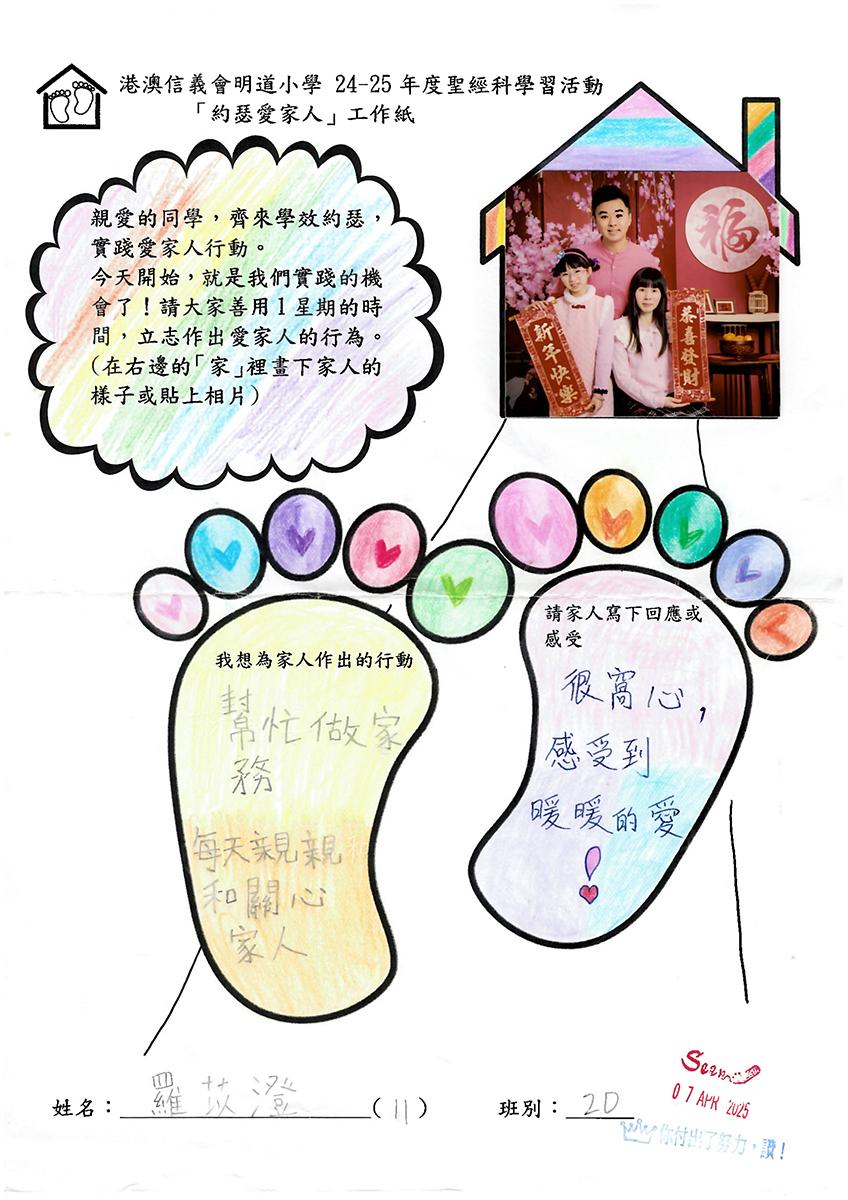 港澳信義會明道小學 24-25 年度聖經科學習活動
「約瑟愛家人」工作紙
親愛的同學，齊來學效約瑟，
實踐愛家人行動。
今天開始，就是我們實踐的機
會了！請大家善用1星期的時
間，立志作出愛家人的行為。
(在右邊的「家」裡畫下家人的
樣子或貼上相片)
福
新年快樂
恭喜發財
我想為家人作出的行動
幫忙做家
務
每天親親
和關心
家人
請家人寫下回應或
感受
很窩心,
感受到
暖暖的愛
!
姓名：羅苡澄 (11)
班別：2D
Seen
07 APR 2025
你付出了努力，讚！